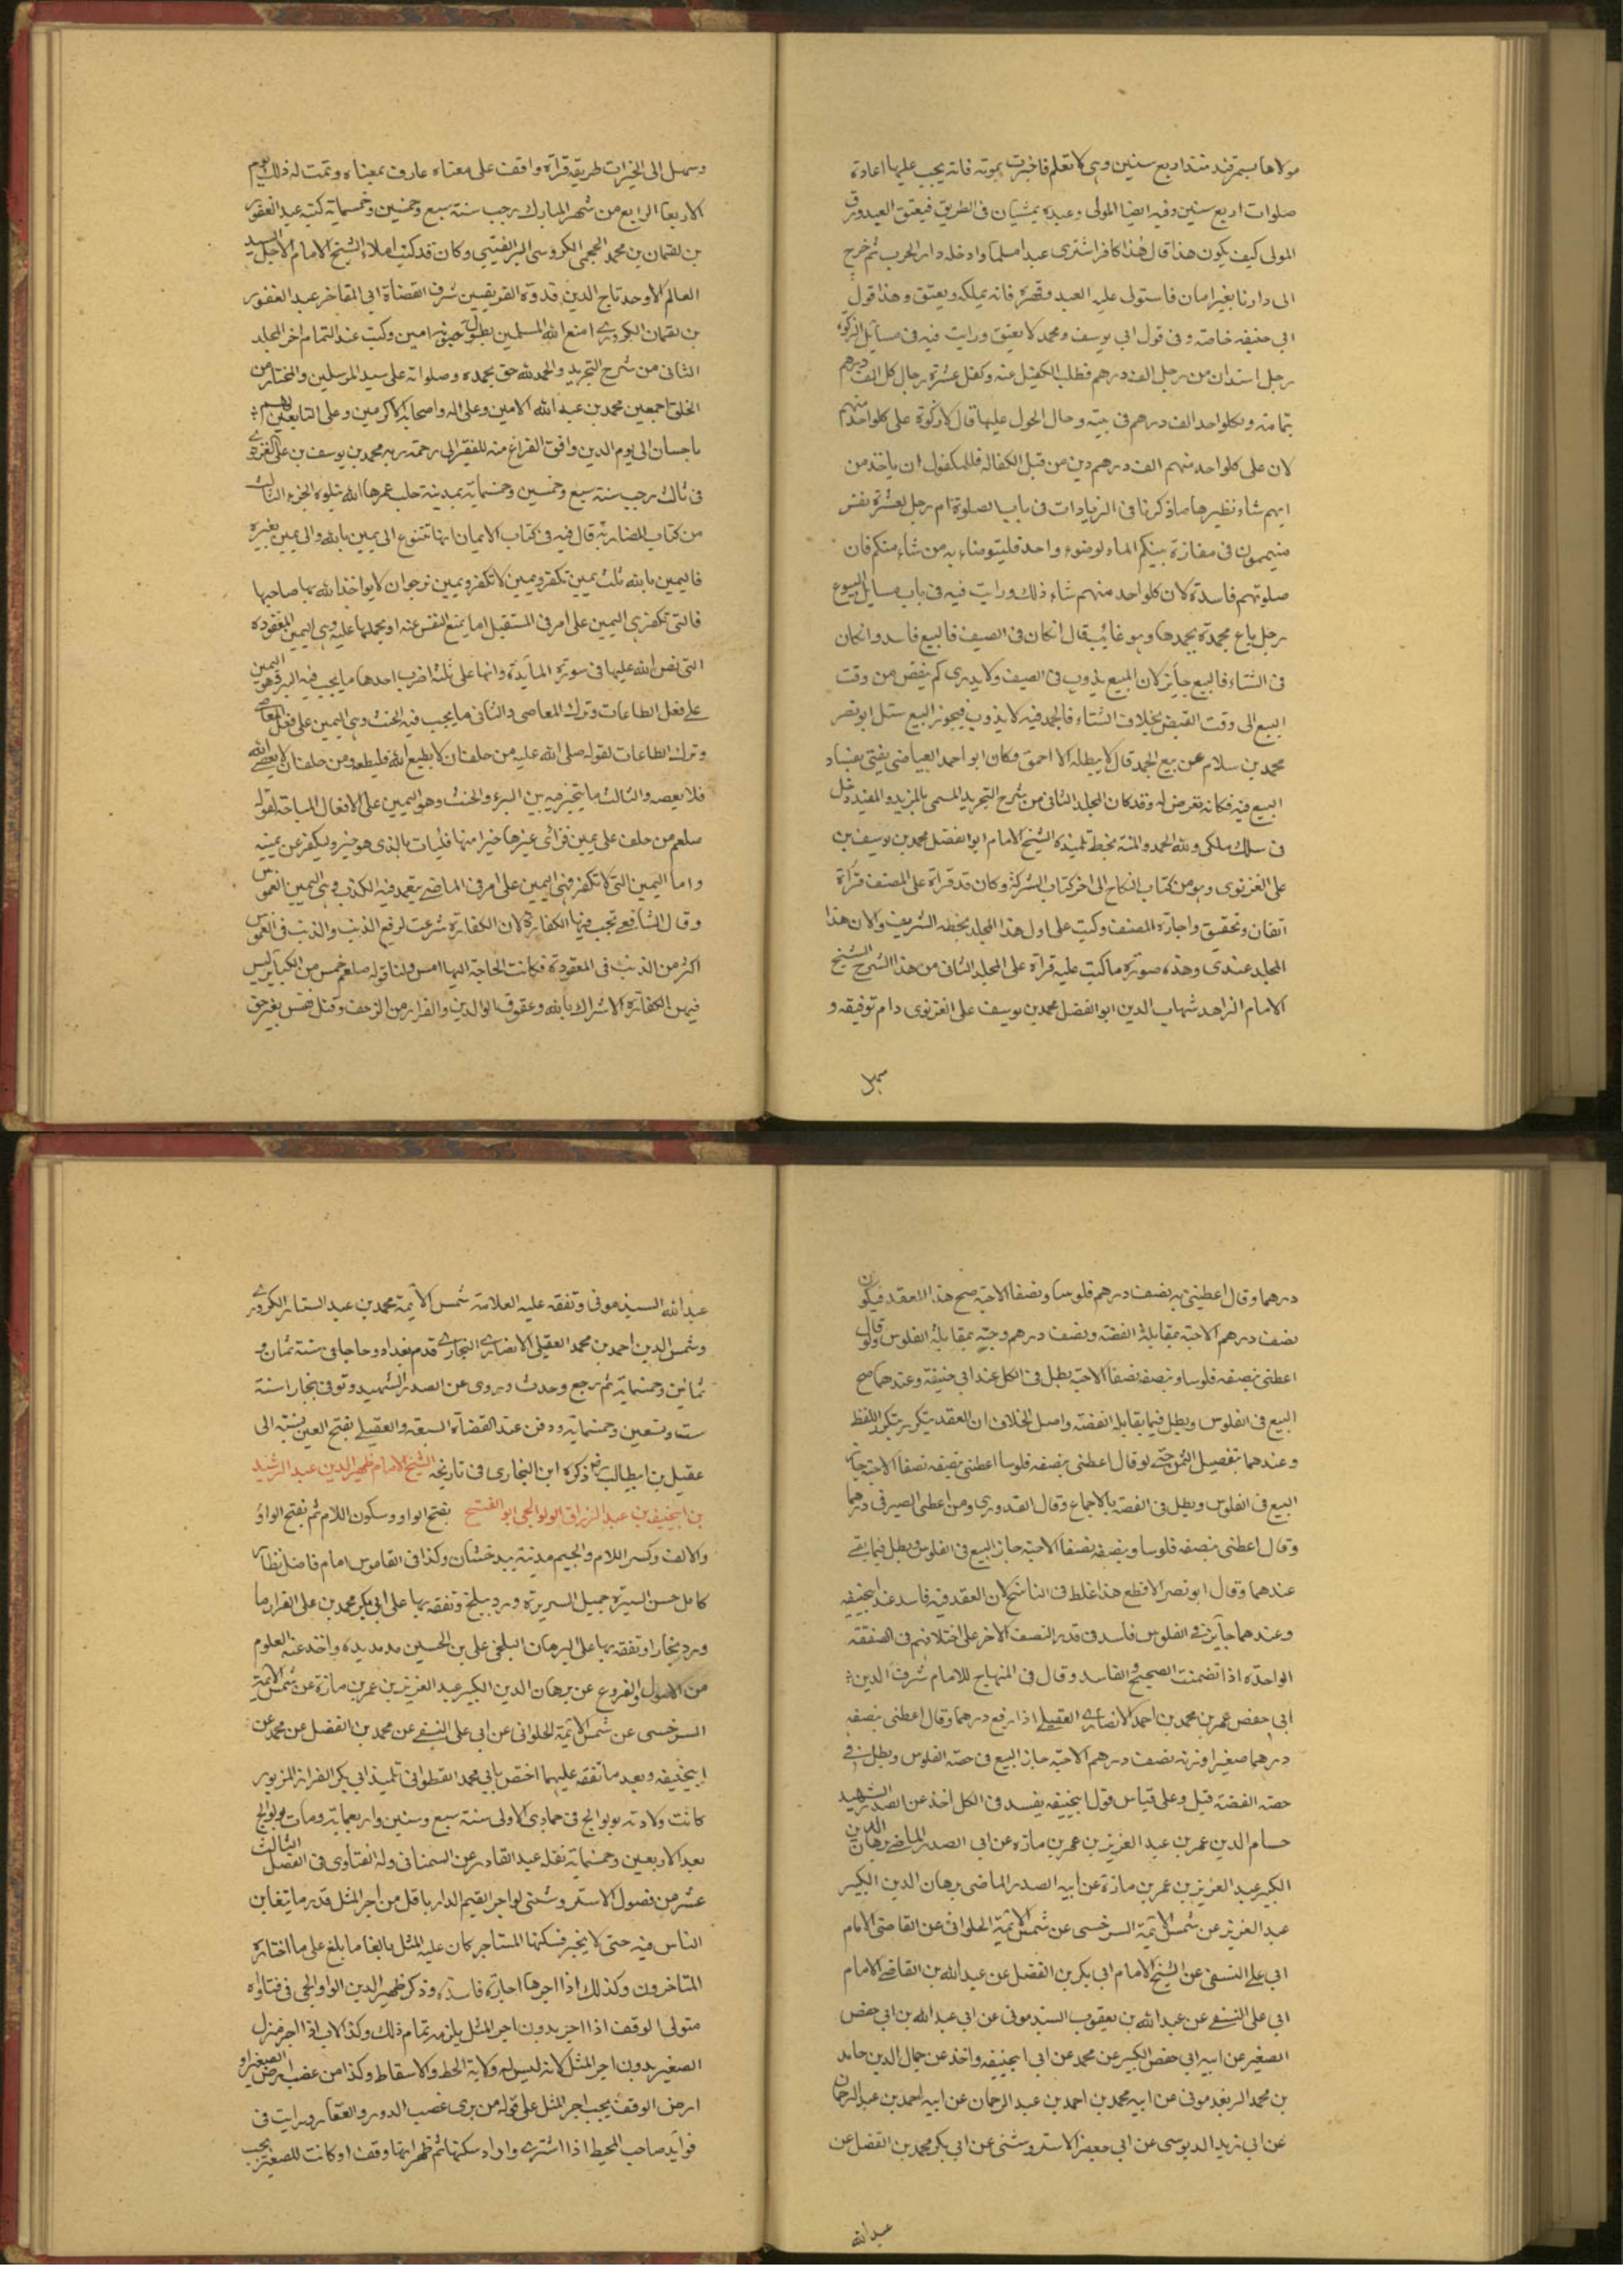 مولاها بسمرقند منذ اربع سنين وهى لا تعلم فاخبرت بموته فانه يجب عليها اعادة
صلوات اربع سنين وفيه ايضا المولى وعبده يمشيان فى الطريق فيعتق العبد ورق
المولى كيف يكون هذا قال هذا كافر اشترى عبدا مسلما وادخله دار الحرب ثم خرج
الى دارنا بغير امان فاستولى عليه العبد وقهره فانه يملكه ويعتق وهذا قول
ابى حنيفه خاصة وفى قول ابى يوسف ومحمد لا يعتق ورايت فيه فى مسائل الزكوة
رجل استدان من رجل الف درهم فطلب الكفيل عنه وكفل عشرة رجال كل الف درهم
تمامته ولكل واحد الف درهم فى بيته وحال الحول عليها قال لا زكوة على كل واحد منهم
لان على كل واحد منهم الف درهم دين من قبل الكفالة فللمكفول ان ياخذ من
ايهم شاء نظيرها ما ذكرنا فى الزيادات فى باب الصلوة ام رجل لعشرة نفس
متيممون فى مفازة بينكم الماء لوضوء واحد فليتوضاء به من شاء منكم فان
صلوتهم فاسدة لان كل واحد منهم شاء ذلك ورايت فيه فى باب مسايل البيوع
رجل باع مجمدة بجمدها وهو غائب قال ان كان فى الصيف فالبيع فاسد وان كان
فى الشتاء فالبيع جايز لان المبيع يذوب فى الصيف ولا يدرى كم ينقص من وقت
البيع الى وقت القبض بخلاف الشتاء فالجمد فيه لا يذوب فيجوز البيع سئل ابو نصر
محمد بن سلام عن بيع الجمد قال لا يبطله الا احمق وكان ابو احمد العياضى يفتى بفساد
البيع فيه فكانه تعرض له وقد كان المجلد الثانى من شرح التجريد المسمى بالمزيد والمفيد دخل
فى سلك ملكى ولله الحمد والمنة بخط تلميذه الشيخ الامام ابو الفضل محمد بن يوسف بن
على الغزنوى وهو من كتاب النكاح الى اخر كتاب الشركة وكان قد قراه على المصنف قراة
اتقان وتحقيق واجازه المصنف وكتب على اول هذا المجلد بخطه الشريف والان هذا
المجلد عندى وهذه صورة ما كتب عليه قراة على المجلد الثانى من هذا الشرح الشيخ
الامام الزاهد شهاب الدين ابو الفضل محمد بن يوسف على الغزنوى دام توفيقه و
سهل
وسهل الى الخيرات طريقه قراة واقف على معناه عارف بمعناه وتمت له ذلك يوم
الاربعا الرابع من شهر المبارك رجب سنة سبع وخمسين وخمسمايه كتبه عبد الغفور
بن لقمان بن محمد الكردى وكان قد كتب املاء الشيخ الامام الاجل السيد
العالم الاوحد تاج الدين قدوة الفريقين شرف القضاة ابى المفاخر عبد الغفور
بن لقمان الكردرى امتع الله المسلمين بطول امين وكتب عند التمام اخر المجلد
الثانى من شرح التجريد والحمد لله حق بحمده وصلواته على سيد المرسلين والمختار من
الخلق اجمعين محمد بن عبد الله الامين وعلى اله واصحابه الاكرمين وعلى التابعين لهم
باحسان الى يوم الدين وافق الفراغ منه للفقير الى رحمة ربه محمد بن يوسف بن على الغزنوى
فى ثالث رجب سنة سبع وخمسين وخمسمائة بمدينة حلب عمرها الله يتلوه الجزء الثالث
من كتاب المضاربة قال فيه فى كتاب الايمان انها تتنوع الى يمين بالله والى يمين بغيره
فاليمين بالله ثلث يمين تكفر ويمين لا تكفر ويمين نرجو ان لا يواخذ الله بها صاحبها
فالتى تكفر هى اليمين على امر فى المستقبل اما يمنع النفس عنه او يحملها عليه وهى اليمين المعقودة
التى نص الله عليها فى سورة المايدة وانها على ثلثة اضرب احدها ما يجب فيه البر وهو اليمين
على فعل الطاعات وترك المعاصى والثانى ما يجب فيه الحنث وهى اليمين على فعل المعاصى
وترك الطاعات لقوله صلى الله عليه من حلف ان يطيع الله فليطعه ومن حلف ان يعصى الله
فلا يعصه والثالث ما يتخير فيه بين البر والحنث وهو اليمين على الافعال المباحة لقوله
صلعم من حلف على يمين فرأى غيرها خيرا منها فليات بالذى هو خير وليكفر عن يمينه
واما اليمين التى لا تكفر فهى اليمين على امر فى الماضى يتعمد فيه الكذب وهى اليمين الغموس
وقال الشافعى تجب فيها الكفارة لان الكفارة شرعت لرفع الذنب والذنب فى الغموس
اكثر من الذنب فى المعقودة فكانت الحاجة اليها امس ولنا قوله صلعم خمس من الكباير ليس
فيهن الكفارة الاشراك بالله وعقوق الوالدين والفرار من الزحف وقتل نفس بغير حق
درهما وقال اعطينى به نصف درهم فلوسا ونصفا الا حبة صح هذا العقد فيكون
نصف درهم الا حبة بمقابلة الفضة ونصف درهم وحبة بمقابلة الفلوس ولو قال
اعطنى بنصفه فلوسا وبنصفه نصفا الا حبة بطل فى الكل عند ابى حنيفة وعندهما صح
البيع فى الفلوس وبطل فيما يقابله الفضة واصل الخلاف ان العقد يتكرر بتكرر اللفظ
وعندهما بتفصيل الثمن حتى لو قال اعطنى بنصفه فلوسا اعطنى بنصفه نصفا الا حبة جاز
البيع فى الفلوس وبطل فى الفضة بالاجماع وقال القدورى ومن اعطى الصيرفى درهما
وقال اعطنى بنصفه فلوسا وبنصفه نصفا الا حبة جاز البيع فى الفلوس وبطل فيما بقى
عندهما وقال ابو نصر الاقطع هذا غلط فى الناسخ لان العقد فيه فاسد عند ابيحنيفه
وعندهما جايز فى الفلوس فاسد فى قدر النصف الاخر على اختلافهم فى الصفقة
الواحدة اذا تضمنت الصحيح والفاسد وقال فى المنهاج للامام شرف الدين
ابى حفص عمر بن محمد بن احمد الانصارى العقيلى اذا رفع درهما وقال اعطنى بنصفه
درهما صغيرا وزنه نصف درهم الا حبة جاز البيع فى حصة الفلوس وبطل فى
حصة الفضة قيل وعلى قياس قول ابيحنيفه يفسد فى الكل اخذ عن الصدر الشهيد
حسام الدين عمر بن عبد العزيز بن عمر بن مازه عن ابى الصدر الماضى برهان الدين
الكبير عبد العزيز بن عمر بن مازة عن ابيه الصدر الماضى برهان الدين الكبير
عبد العزيز عن شمس الائمة السرخسى عن شمس الائمة الحلوانى عن القاضى الامام
ابى على النسفى عن الشيخ الامام ابى بكر بن الفضل عن عبد الله بن القاضى الامام
ابى على النسفى عن عبد الله بن يعقوب السبذمونى عن ابى عبد الله بن ابى حفص
الصغير عن ابيه ابى حفص الكبير عن محمد عن ابى ابيحنيفه واخذ عن جمال الدين حامد
بن محمد الريغدمونى عن ابيه محمد بن احمد بن عبد الرحمان عن ابيه احمد بن عبد الرحمان
عن ابى زيد الدبوسى عن ابى جعفر الاستروشنى عن ابى بكر محمد بن الفضل عن
عبد الله
عبد الله السبذمونى وتفقه عليه العلامة شمس الائمة محمد بن عبد الستار الكردرى
وشمس الدين احمد بن محمد العقيلى الانصارى البخارى قدم بغداد حاجا فى سنة ثمان و
ثمانين وخمسماية ثم رجع وحدث وروى عن الصدر الشهيد وتوفى ببخارا سنة
ست وتسعين وخمسمايه ودفن عند القضاة السبعة والعقيلى بفتح العين نسبة الى
عقيل بن ابيطالب رضى ذكره ابن النجارى فى تاريخه الشيخ الامام ظهير الدين عبد الرشيد
بن ابيحنيفه بن عبد الرزاق الولوالجى ابو الفتح بفتح الواو وسكون اللام ثم بفتح الواو
والالف وكسر اللام والجيم مدينة ببدخشان وكذا فى القاموس امام فاضل نظار
كامل حسن السيرة جميل السريرة ورد ببلخ وتفقه بها على ابى بكر محمد بن على القزاز ما
ورد بخارا وتفقه بها على البرهان البلخى على بن الحسين مدة مديده واخذ عنه العلوم
من الاصول والفروع عن برهان الدين الكبير عبد العزيز بن عمر بن مازة عن شمس الائمة
السرخسى عن شمس الائمة الحلوانى عن ابى على النسفى عن محمد بن الفضل عن محمد عن
ابيحنيفه وبعد ما تفقه عليهما اختص بابى محمد القطوانى تلميذ ابى بكر القزاز المزبور
كانت ولادته بولوالج فى جمادى الاولى سنة سبع وستين واربعماية ومات بولوالج
بعد الاربعين وخمسماية نقله عبد القادر عن السمعانى وله الفتاوى فى الفصل الثالث
عشر من فصول الاستروشنى لو اجر القيم الدار باقل من اجر المثل قدر ما يتغابن
الناس فيه حتى لا يجبر فسكنها المستاجر كان عليه المثل بالغا ما بلغ على ما اختاره
المتاخرون وكذلك اذا اجرها اجارة فاسدة وذكر ظهير الدين الولوالجى فى فتاواه
متولى الوقف اذا اجر بدون اجر المثل يلزمه تمام ذلك وكذا الاب اذا اجر منزل
الصغير بدون اجر المثل لانه ليس له ولاية الحط والاسقاط وكذا من غصب ارض الصغير او
ارض الوقف يجب اجر المثل على قوله من يرى غصب الدور والعقار ورايت فى
فوايد صاحب المحيط اذا اشترى دارا وسكنها ثم ظهر انها وقف او كانت للصغير يجب